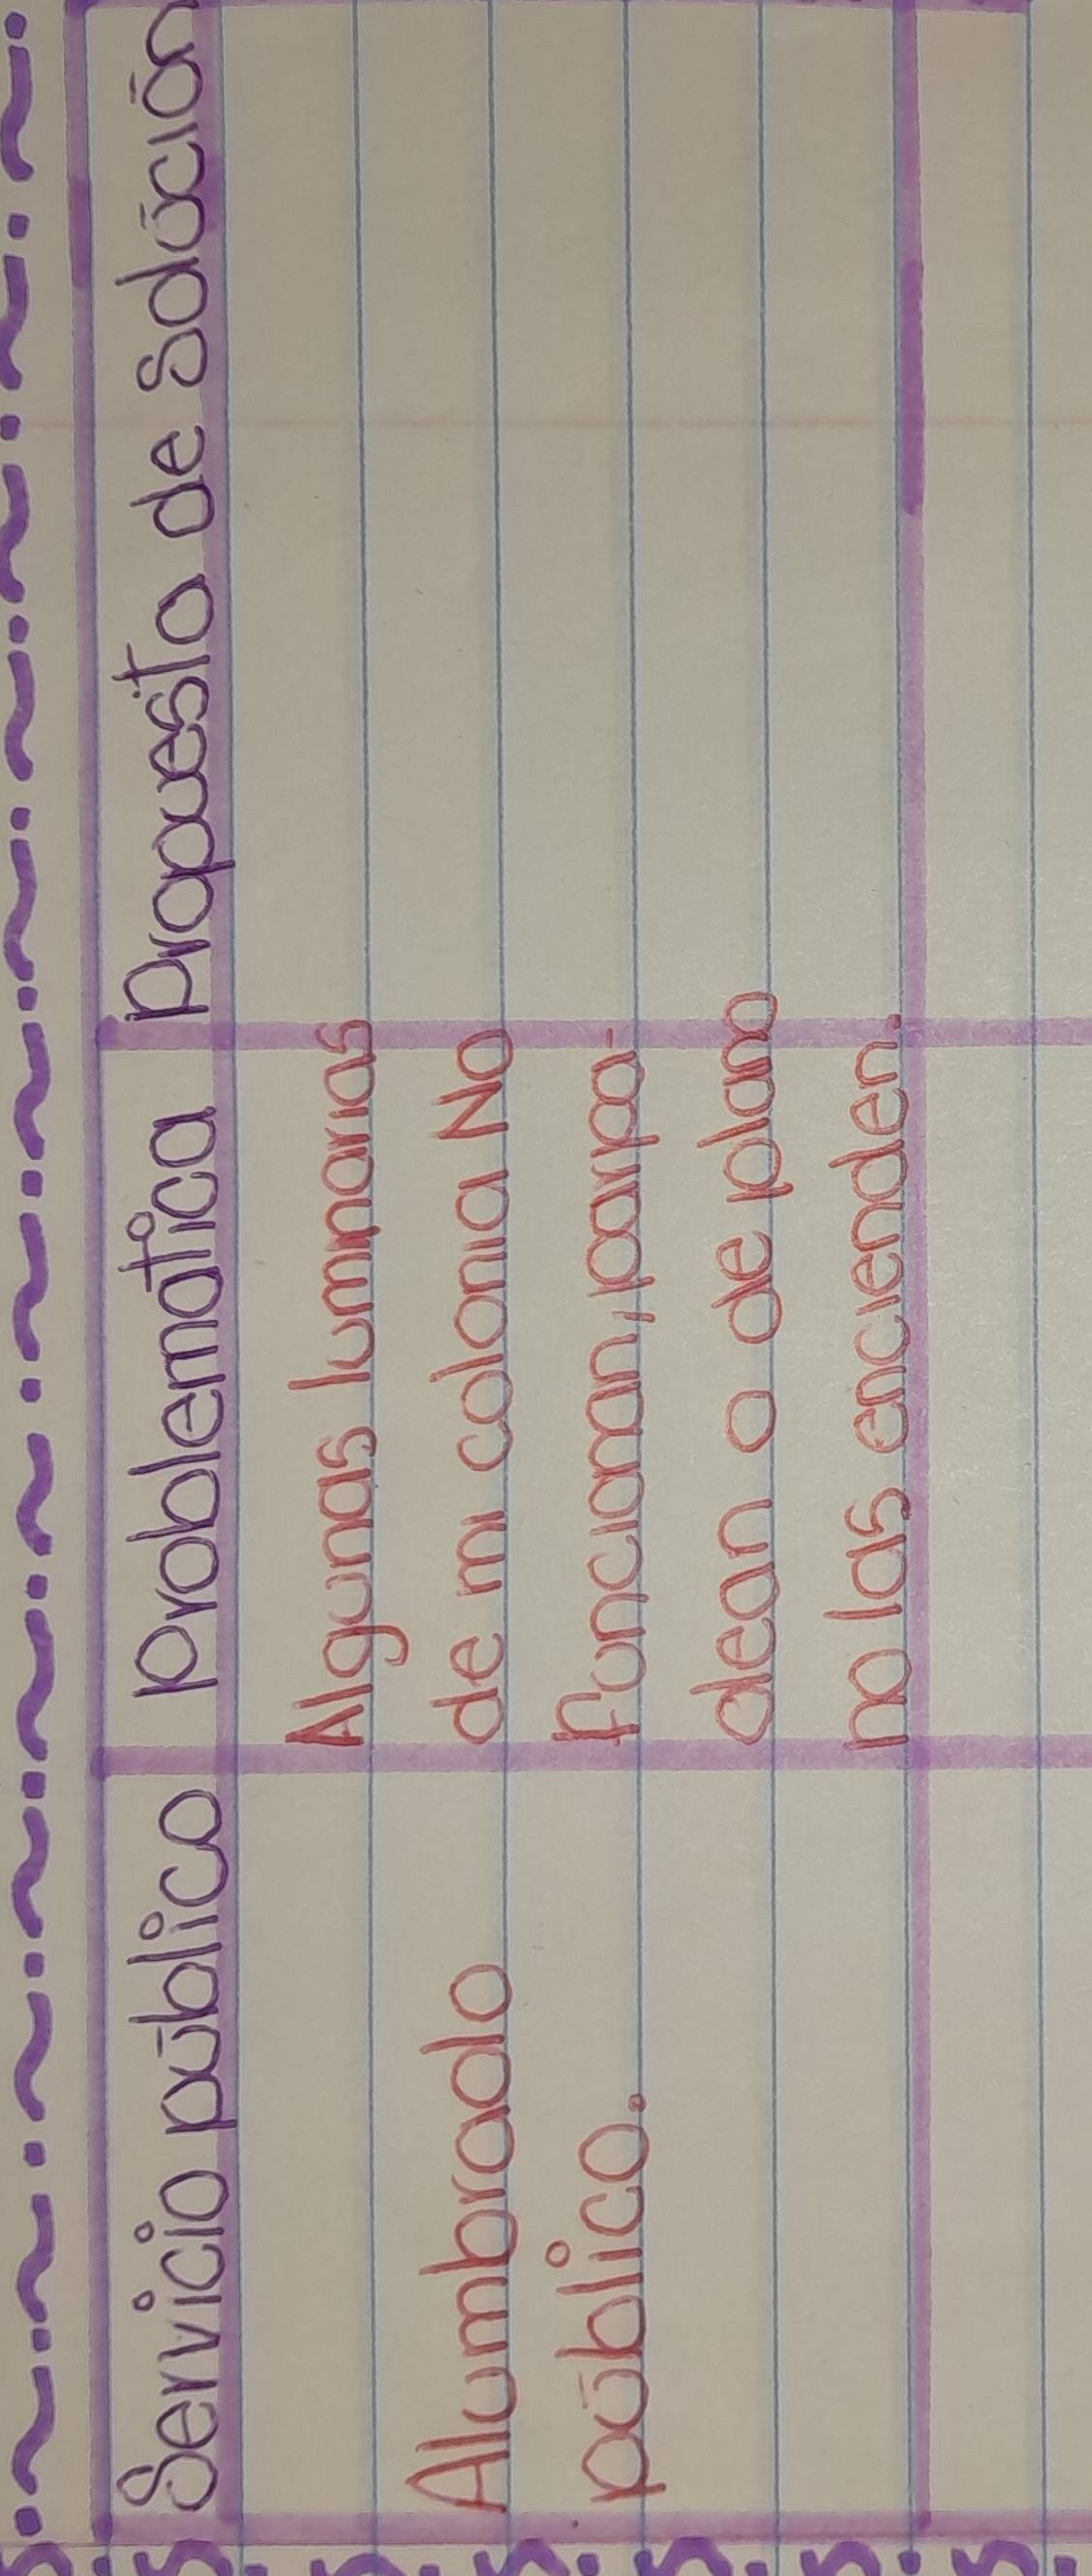 Servicio público Problematica Propuesta de Solución
Algunas luminarias
Alumbrado de mi colonia No
público. funcionan, parpa-
dean o de plano
no las encienden.